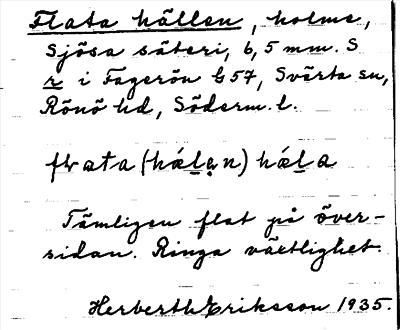 Flata hällen, holme,
Sjösa säteri, 6,5 mm. S
r i Fagerön G57, Svärta sn,
Rönö hd, Söderm. l.
flata (hǽḷạn) hǽḷa
Tämligen flat på över-
sidan. Ringa växtlighet.
Herberth Eriksson 1935.